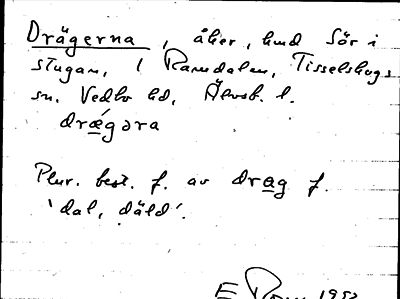 Drägerna, åker, hmd Sör i
stugan, i Ramdalen, Tisselskogs
sn. Vedbo hd, Älvsb. l.
drǽgəra
Plur. best. f. av drag f.
'dal, däld'.
E 195